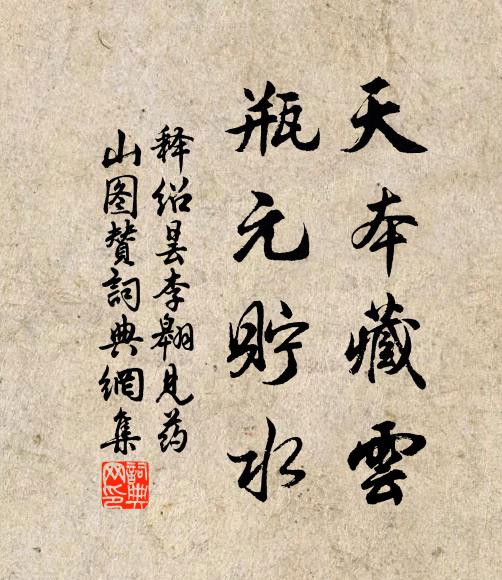 天本藏雲
瓶元貯水
释绍昙李翱见药
山图赞詞典網集
詞典
网印